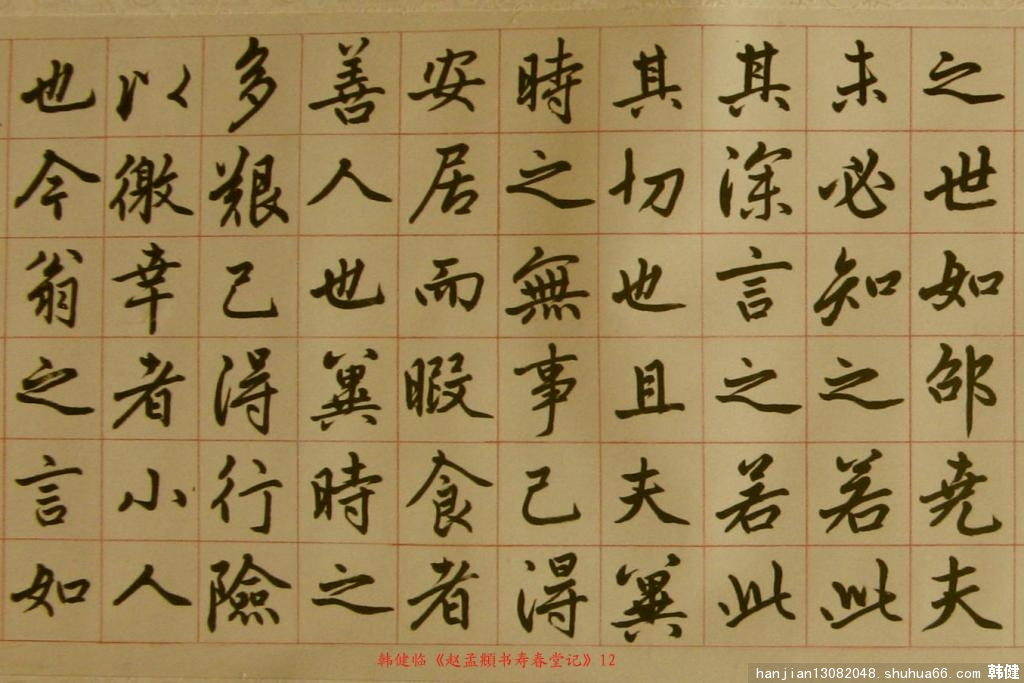 之世如邵尭夫
未必知之若此
其深言之若此
其切也且夫冀
時之無事己得
安居而暇食者
善人也冀時之
多艱己得行險
以徼幸者小人
也今翁之言如
韩健临《赵孟頫书寿春堂记》12
hanjian13082048.shuhua66.com 韩健